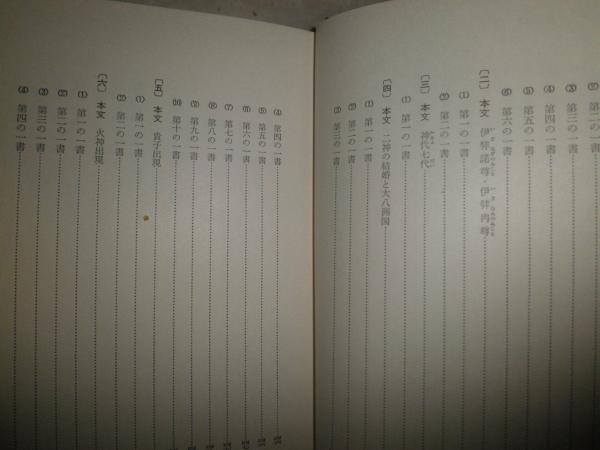 ⑵ 第二の一書
⑶ 第三の一書
⑷ 第四の一書
⑸ 第五の一書
⑹ 第六の一書
〔二〕 本文 伊弉諾尊・伊弉冉尊
⑴ 第一の一書
⑵ 第二の一書
〔三〕 本文 神代七代
⑴ 第一の一書
〔四〕 本文 二神の結婚と大八洲国
⑴ 第一の一書
⑵ 第二の一書
⑶ 第三の一書
⑷ 第四の一書
⑸ 第五の一書
⑹ 第六の一書
⑺ 第七の一書
⑻ 第八の一書
⑼ 第九の一書
⑽ 第十の一書
〔五〕 本文 貴子出現
⑴ 第一の一書
⑵ 第二の一書
〔六〕 本文 火神出現
⑴ 第一の一書
⑵ 第二の一書
⑶ 第三の一書
⑷ 第四の一書